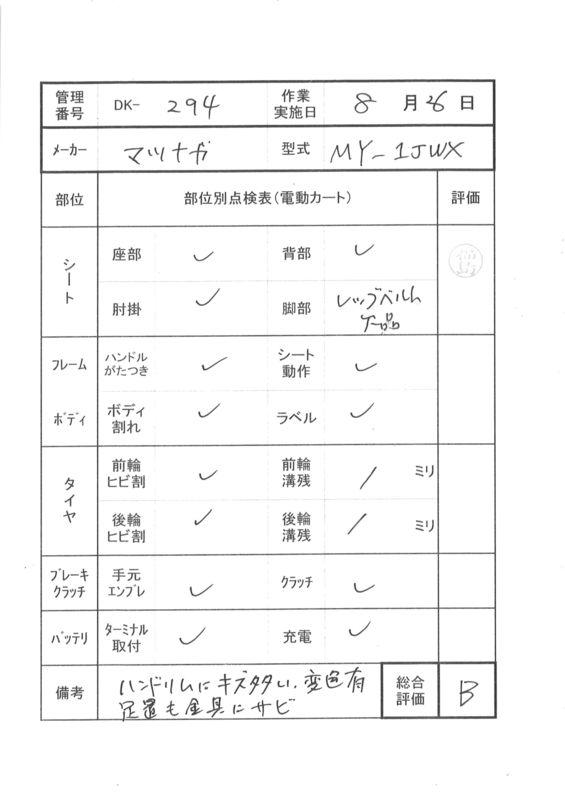 管理番号 DK- 294 作業実施日 8 月 26 日
メーカー マツナガ 型式 MY-1JWX
部位 部位別点検表(電動カート) 評価
シート 座部 ✓ 背部 ✓ 福島
肘掛 ✓ 脚部 レッグベルト 欠品
フレーム ハンドルがたつき ✓ シート動作 ✓
ボディ ボディ割れ ✓ ラベル ✓
タイヤ 前輪ヒビ割 ✓ 前輪溝残 / ミリ
後輪ヒビ割 ✓ 後輪溝残 / ミリ
ブレーキクラッチ 手元エンブレ ✓ クラッチ ✓
バッテリ ターミナル取付 ✓ 充電 ✓
備考 ハンドリムにキズ多い、変色有 総合評価 B
足置き金具にサビ